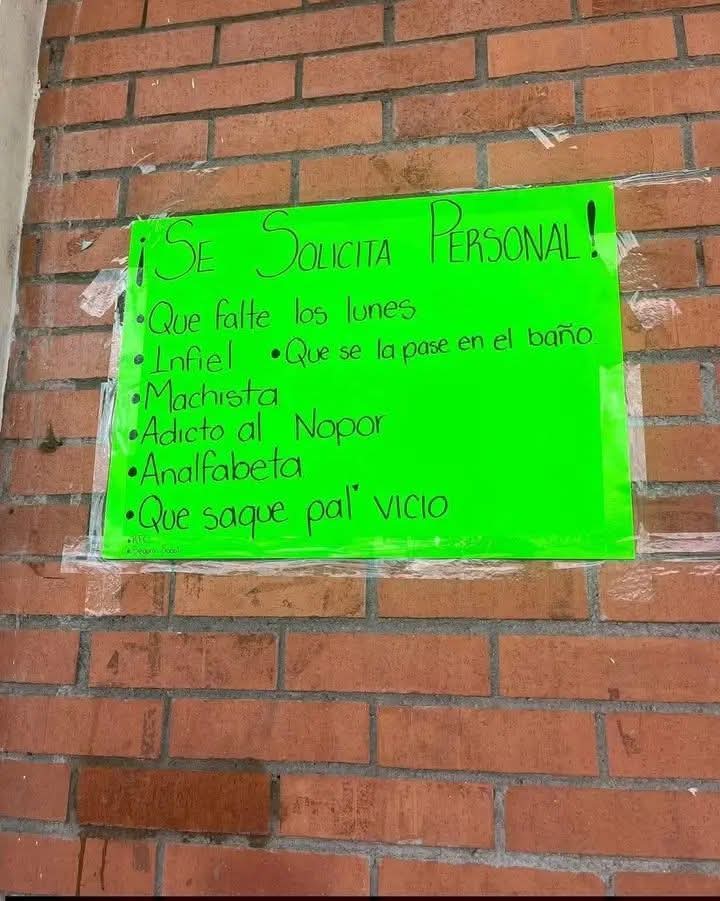 ¡Se Solicita Personal!
•Que falte los lunes
•Infiel •Que se la pase en el baño
•Machista
•Adicto al Nopor
•Analfabeta
•Que saque pal' vicio